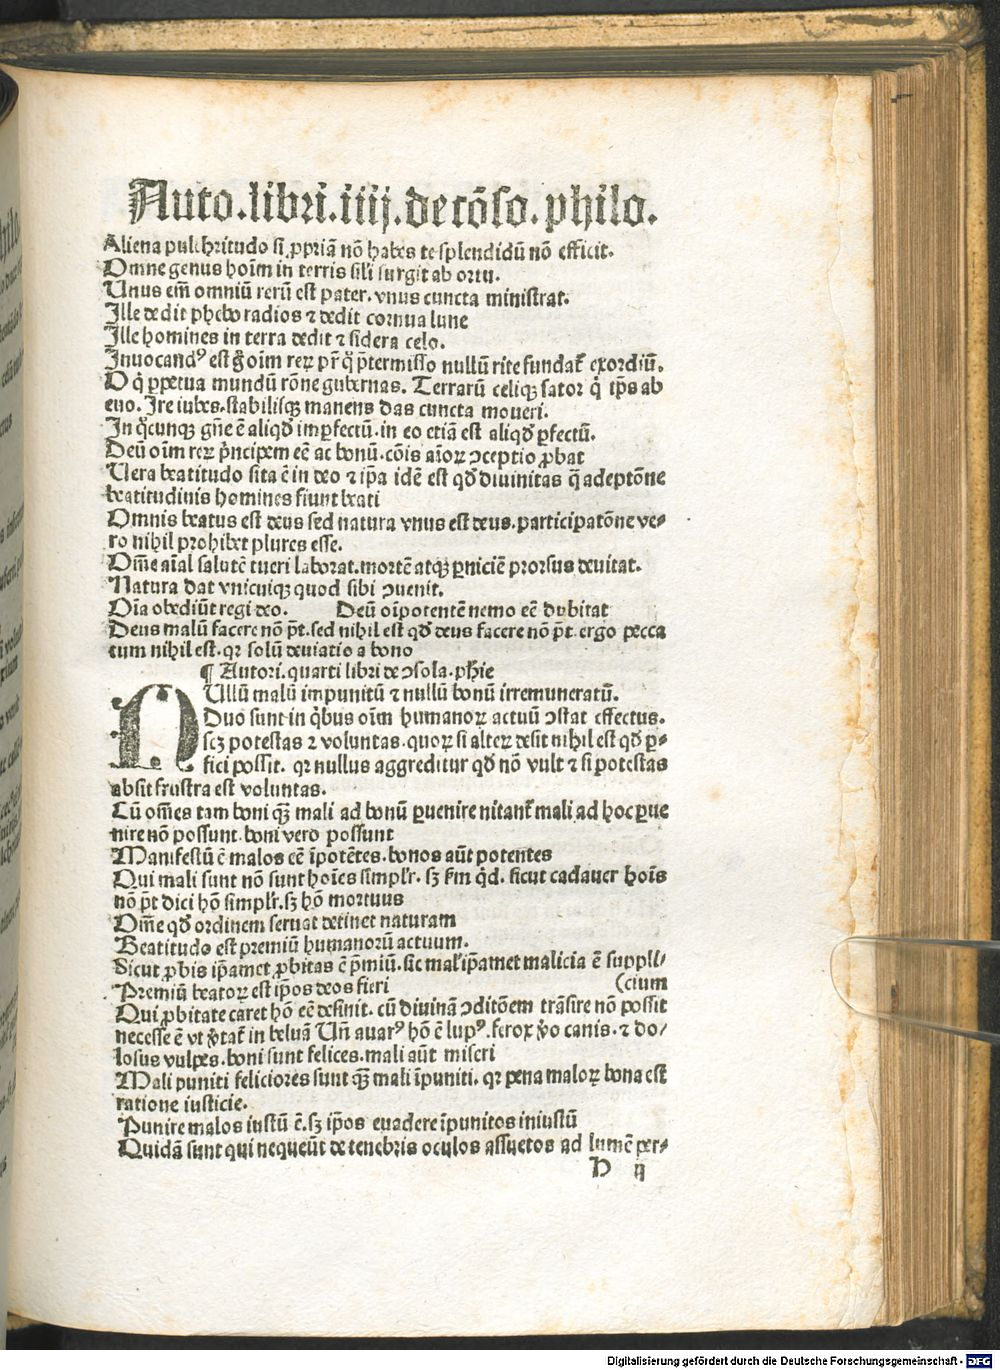 Auto.libri.iiij.de cõso.philo.
Aliena pulchritudo si ꝓpriã nõ habes te splendidũ nõ efficit.
Omne genus hoim̃ in terris sili surgit ab ortu.
Unus em̃ omniũ rerũ est pater.vnus cuncta ministrat.
Ille dedit phebo radios ⁊ dedit cornua lune
Ille homines in terra dedit ⁊ sidera celo.
Inuocandꝰ est g̃ oim̃ reꝝ pr̃ q̊ p̃termisso nullũ rite fundat᷑ exordiũ.
O q̇ ꝑpetua mundũ rõne gubernas. Terrarũ celiqꝫ sator q̇ tp̃s ab
euo. Ire iubes.stabilisqꝫ manens das cuncta moueri.
In q̊cunqꝫ gñe ẽ aliqd̕ imꝑfectũ.in eo etiã est aliqd̕ ꝑfectũ.
Deũ oim̃ reꝝ p̃ncipem eẽ ac bonũ.cõis aĩoꝝ ↄceptio ꝓbat
Uera beatitudo sita ẽ in deo ⁊ ip̃a idẽ est qd̕ diuinitas q̃ adeptõne
beatitudinis homines fiunt beati
Omnis beatus est deus sed natura vnus est deus.participatõne ve⸗
ro nihil prohibet plures esse.
Om̃e aĩal salutẽ tueri laborat.mortẽ atqꝫ ꝑniciẽ prorsus deuitat.
Natura dat vnicuiqꝫ quod sibi ↄuenit.
Oĩa obediũt regi deo. Deũ oĩpotentẽ nemo eẽ dubitat
Deus malũ facere nõ p̃t.sed nihil est qd̕ deus facere nõ p̃t.ergo pecca
tum nihil est.qꝛ solũ deuiatio a bono
¶ Autori.quarti libri de ↄsola.phie
NUllũ malũ impunitũ ⁊ nullũ bonũ irremuneratũ.
Duo sunt in q̇bus oim̃ humanoꝝ actuũ ↄstat effectus.
scꝫ potestas ⁊ voluntas.quoꝝ si alteꝝ desit nihil est qd̕ ꝑ⸗
fici possit. qꝛ nullus aggreditur qd̕ nõ vult ⁊ si potestas
absit frustra est voluntas.
Cũ om̃es tam boni qꝫ mali ad bonũ ꝑuenire nitant᷑ mali ad hoc ꝑue
nire nõ possunt.boni vero possunt
Manifestũ ẽ malos eẽ ĩpotẽtes.bonos aũt potentes
Qui mali sunt nõ sunt hoĩes simplr̃.sꝫ ẜm q̇d. sicut cadauer hoĩs
nõ p̃t dici hõ simplr̃.sꝫ hõ mortuus
Om̃e qd̕ ordinem seruat detinet naturam
Beatitudo est premiũ humanorũ actuum.
Sicut ꝓbis ip̃amet ꝓbitas ẽ p̃miũ.sic mal̕ ip̃amet malicia ẽ suppli/
Premiũ beatoꝝ est ip̃os deos fieri (cium
Qui ꝓbitate caret hõ eẽ desinit. cũ diuinã ↄditõem trãsire nõ possit
necesse ẽ vt v̕tat᷑ in beluã Uñ auarꝰ hõ ẽ lupꝰ.ferox v̕o canis.⁊ do/
losus vulpes.boni sunt felices.mali aũt miseri
Mali puniti feliciores sunt qꝫ mali ĩpuniti.qꝛ pena maloꝝ bona est
ratione iusticie.
Punire malos iustũ ẽ.sꝫ ip̃os euadere ĩpunitos iniustũ
Quidã sunt qui nequeũt de tenebris oculos assuetos ad lumẽ per⸗
D ij
Digitalisierung gefördert durch die Deutsche Forschungsgemeinschaft - DFG